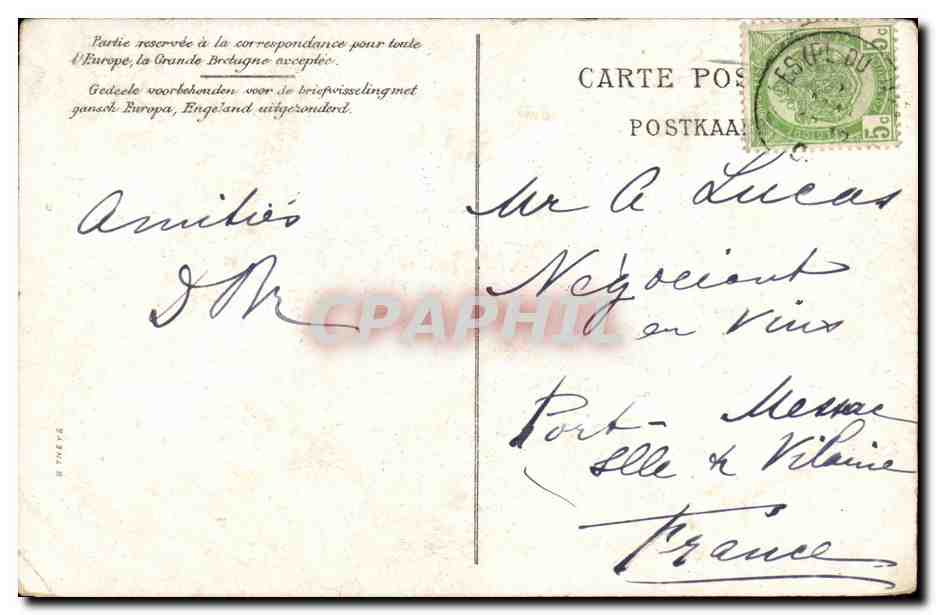 Partie reservée à la correspondance pour toute
l'Europe, la Grande Bretagne exceptée.
Gedeele voorbehouden voor de briefwisseling met
gansch Europa, Engeland uitgezonderd.
CARTE POS
POSTKAA
5c
5c
Amitiés
Mr A Lucas
Négociant
en Vins
Port-Messac
Ille & Vilaine
France
CPAPHIL